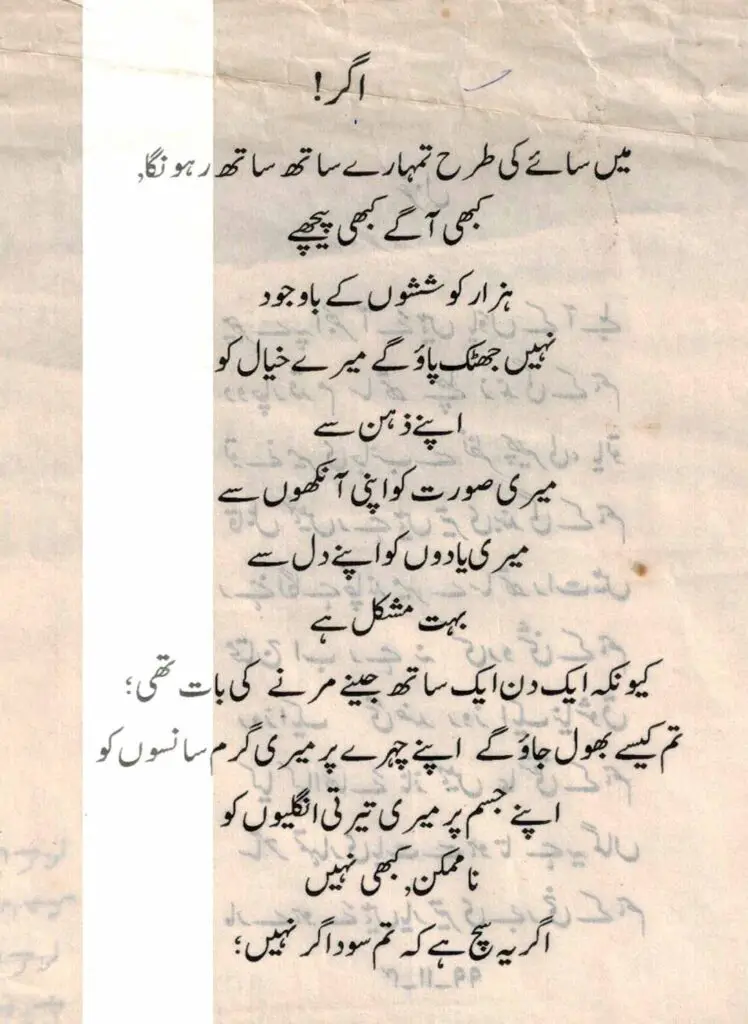 اگر!
میں سائے کی طرح تمہارے ساتھ ساتھ رہونگا,
کبھی آگے کبھی پیچھے
ہزار کوششوں کے باوجود
نہیں جھٹک پاؤ گے میرے خیال کو
اپنے ذہن سے
میری صورت کو اپنی آنکھوں سے
میری یادوں کو اپنے دل سے
بہت مشکل ہے
کیونکہ ایک دن ایک ساتھ جینے مرنے کی بات تھی؛
تم کیسے بھول جاؤ گے اپنے چہرے پر میری گرم سانسوں کو
اپنے جسم پر میری تیرتی انگلیوں کو
ناممکن, کبھی نہیں
اگر یہ سچ ہے کہ تم سوداگر نہیں؛